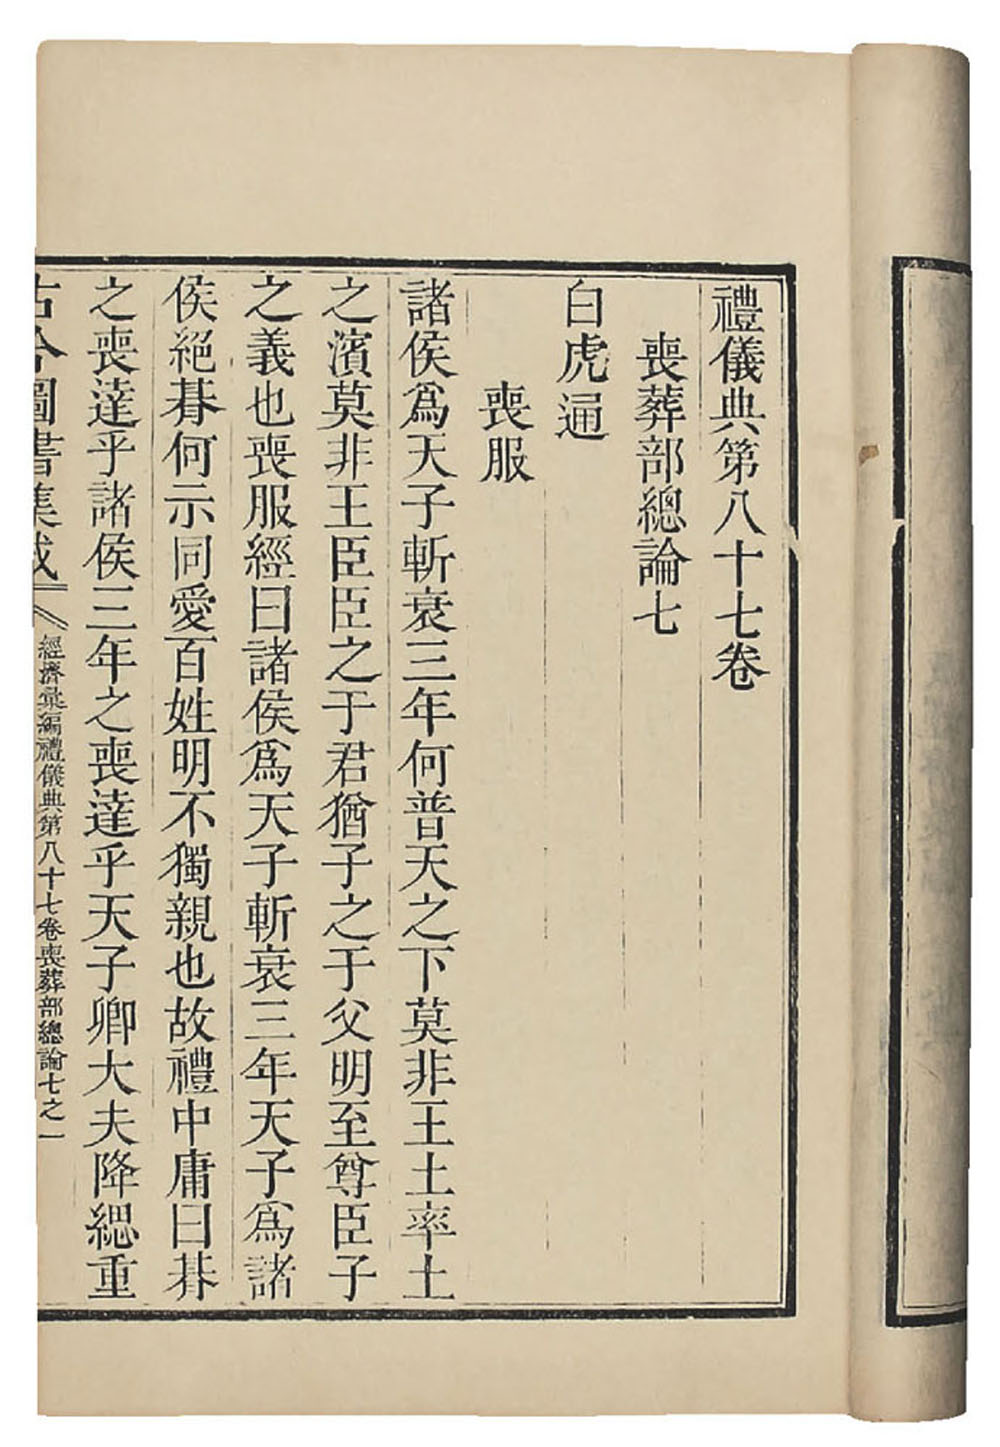 禮儀典第八十七卷
喪葬部總論七
白虎通
喪服
諸侯爲天子斬衰三年何普天之下莫非王土率土
之濱莫非王臣臣之于君猶子之于父明至尊臣子
之義也喪服經曰諸侯爲天子斬衰三年天子爲諸
侯絕朞何示同愛百姓明不獨親也故禮中庸曰朞
之喪達乎諸侯三年之喪達乎天子卿大夫降緦重
古今圖書集成
經濟彙編禮儀典第八十七卷喪葬部總論七之一